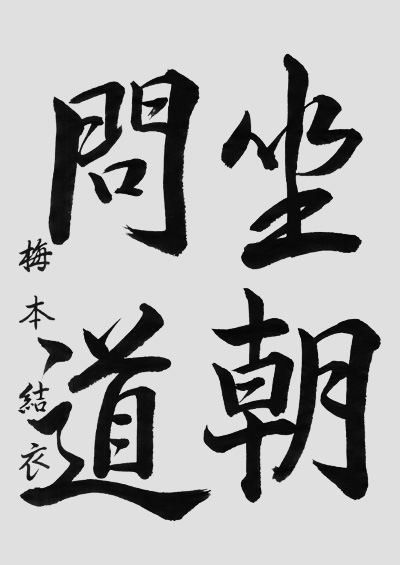 坐朝
問道
梅本結衣